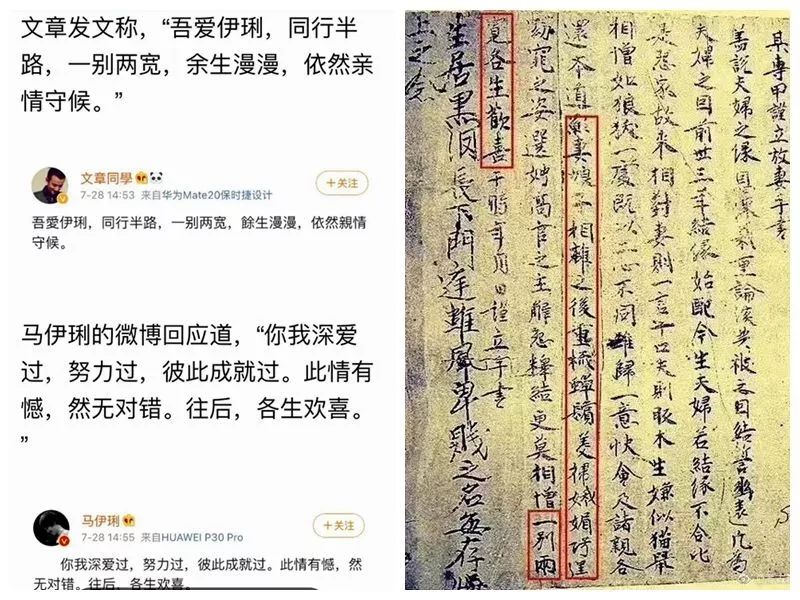 文章发文称，“吾爱伊琍，同行半
路，一别两宽，余生漫漫，依然亲
情守候。”
文章同學
+关注
7-28 14:53 来自华为Mate20保时捷设计
吾愛伊琍，同行半路，一别两宽，餘生漫漫，依然親情
守候。
马伊琍的微博回应道，“你我深爱
过，努力过，彼此成就过。此情有
憾，然无对错。往后，各生欢喜。
”
马伊琍
+关注
7-28 14:55 来自HUAWEI P30 Pro
你我深爱过，努力过，彼此成就过。此情有憾，然
无对错。往后，各生欢喜。
某專甲謹立放妻手書
盖説夫婦之緣恩深義重論談共被之因結誓幽遠凡為
夫婦之因前世三年結緣始配今生夫婦若結緣不合比
是怨家故來相對妻則一言十口夫則反木生嫌似猫鼠
相憎如狼一處既以二心不同難歸一意快會及諸親各
還本道願妻娘子相離之後重梳蟬鬢美掃娥媚巧逞
窈窕之姿選娉高官之主解怨釋結更莫相憎一別兩
寬各生歡喜于時年月日謹立手書
生居黑長下門庭難賤之名